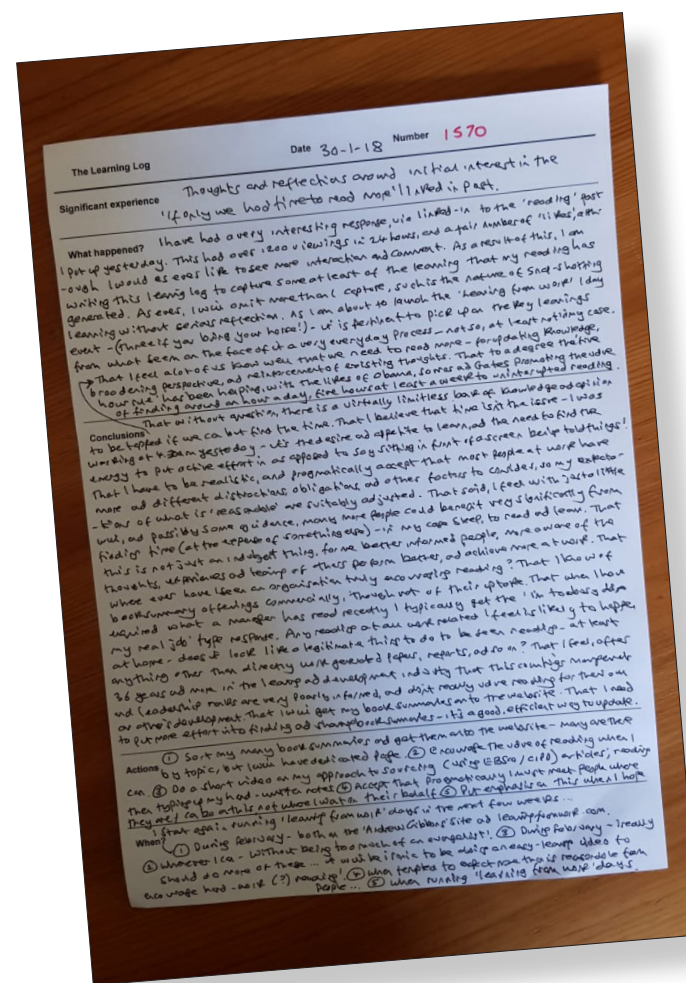 The Learning Log Date 30-1-18 Number 1570
Significant experience Thoughts and reflections around initial interest in the
'If only we had time to read more' linked in post.
What happened? I have had a very interesting response, via linked-in to the 'reading' post
I put up yesterday. This had over 1200 viewings in 24 hours, and a fair number of 'likes', alth-
-ough I would as ever like to see more interaction and comment. As a result of this, I am
writing this learning log to capture some at least of the learning that my reading has
generated. As ever, I will omit more than I capture, such is the nature of
learning without serious reflection. As I am about to launch the 'Learning from work' 1 day
event - (three if you bring your horse!) - it is pertinent to pick up on the key learnings
from what seem on the face of it a very everyday process - not so, at least not in my case.
That I feel a lot of us know well that we need to read more - for updating knowledge,
broadening perspective, and reinforcement of existing thoughts. That to a degree the 'five
hour rule' has been helping, with the likes of Obama, and Gates promoting the value
of finding around an hour a day, five hours at least a week to uninterrupted reading.
Conclusions That without question, there is a virtually limitless bank of knowledge and opinion
to be tapped if we can but find the time. That I believe that time isn't the issue - I was
working at 4.30am yesterday - it's the desire and appetite to learn, and the need to find the
energy to put active effort in as opposed to say sitting in front of a screen being told things!
That I have to be realistic, and pragmatically accept that most people at work have
more and different distractions, obligations, and other factors to consider, so my expecta-
-tions of what is 'reasonable' are suitably adjusted. That said, I feel with just a little
will, and possibly some guidance, many more people could benefit very significantly from
finding time (at the expense of something else) - in my case sleep, to read and learn. That
this is not just an indulgent thing, for me better informed people, more aware of the
thoughts, experiences and learning of others perform better, and achieve more at work. That
where ever have I seen an organisation truly encouraging reading? That I know of
book summary offerings commercially, though not of their uptake. That when I have
enquired what a manager has read recently I typically get the 'I'm too busy doing
my real job' type response. Any reading at all work related I feel is likely to happen
at home - does it look like a legitimate thing to do to be seen reading - at least
anything other than directly work generated papers, reports, and so on? That I feel, after
36 years and more in the learning and development industry that this country's management
and leadership ranks are very poorly informed, and don't really value reading for their own
or other's development. That I will get my book summaries onto the website. That I need
to put more effort into finding and sharing book summaries - it's a good, efficient way to update.
Actions ① Sort my many book summaries and get them onto the website - many are there
by topic, but I will have dedicated page. ② Encourage the value of reading when I
can ③ Do a short video on my approach to sourcing (using EBSCO / CIPD) articles, reading
then typing up my hand-written notes ④ Accept that pragmatically I must meet people where
they are / can be and this not where I want on their behalf ⑤ Put emphasis on this when I hope
I start again running 'learning from work' days in the next few weeks...
When? ① During February - both on the 'Andrew Gibbons' site and learningfromwork.com.
② Whenever I can - without being too much of an evangelist! ③ During February - I really
should do more of these ... it will be ironic to be doing an easy-learning video to
encourage hard-work (?) reading! ④ When tempted to expect more than is reasonable from
people ... ⑤ When running 'learning from work' days.